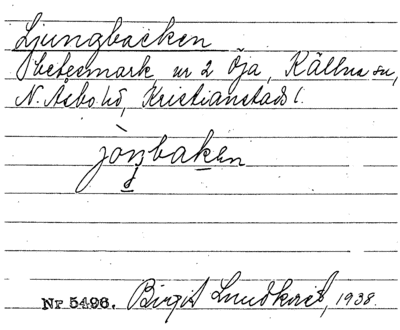 Ljungbacken
betesmark nr 2 Öja, Källna sn,
N. Åsbo hd, Kristianstads l.
jòŋbakən
Nr 5496. Birgit Lundkvist, 1938.